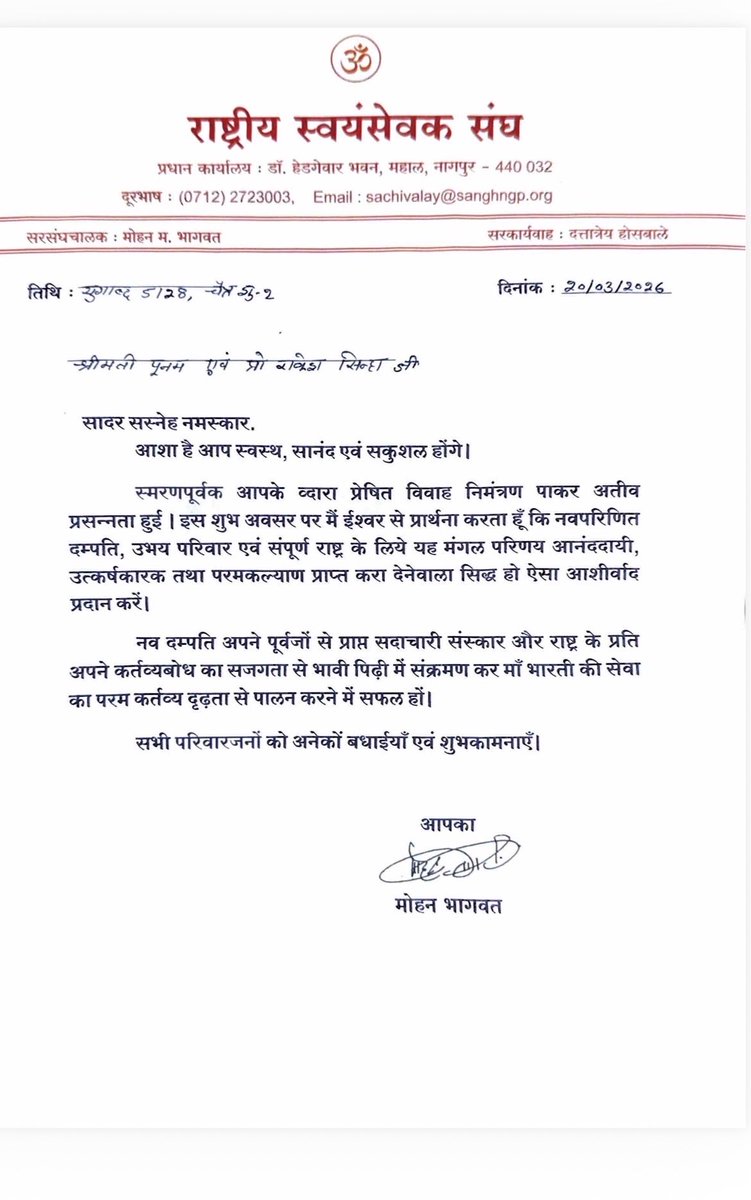 ॐ
राष्ट्रीय स्वयंसेवक संघ
प्रधान कार्यालय : डॉ. हेडगेवार भवन, महाल, नागपुर - 440 032
दूरभाष : (0712) 2723003, Email : sachivalay@sanghngp.org
सरसंघचालक : मोहन म. भागवत सरकार्यवाह : दत्तात्रेय होसबाले
तिथि : युगाब्द 5128, चैत्र शु-2 दिनांक : 20/03/2026
श्रीमती पूनम एवं प्रो राकेश सिन्हा जी
सादर सस्नेह नमस्कार.
आशा है आप स्वस्थ, सानंद एवं सकुशल होंगे।
स्मरणपूर्वक आपके व्दारा प्रेषित विवाह निमंत्रण पाकर अतीव
प्रसन्नता हुई । इस शुभ अवसर पर मैं ईश्वर से प्रार्थना करता हूँ कि नवपरिणित
दम्पति, उभय परिवार एवं संपूर्ण राष्ट्र के लिये यह मंगल परिणय आनंददायी,
उत्कर्षकारक तथा परमकल्याण प्राप्त करा देनेवाला सिद्ध हो ऐसा आशीर्वाद
प्रदान करें।
नव दम्पति अपने पूर्वजों से प्राप्त सदाचारी संस्कार और राष्ट्र के प्रति
अपने कर्तव्यबोध का सजगता से भावी पिढ़ी में संक्रमण कर माँ भारती की सेवा
का परम कर्तव्य दृढ़ता से पालन करने में सफल हों।
सभी परिवारजनों को अनेकों बधाईयाँ एवं शुभकामनाएँ।
आपका
मोहन भागवत